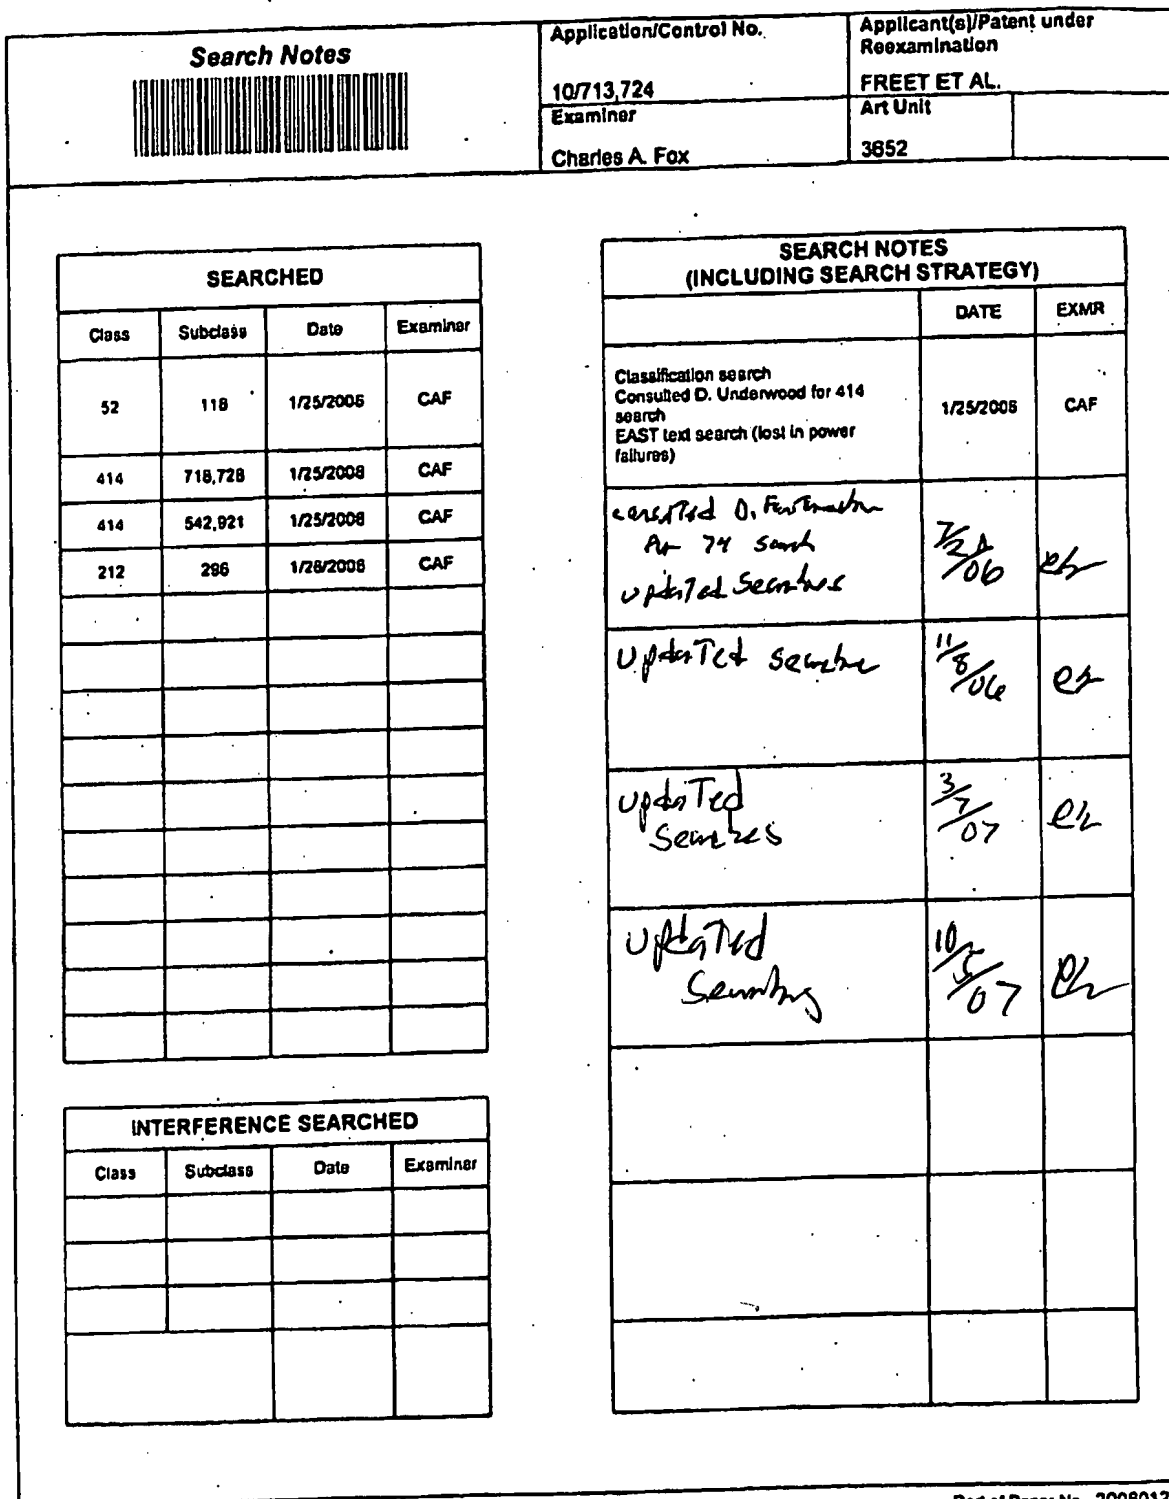 Search Notes
Application/Control No.
10/713,724
Applicant(s)/Patent under
Reexamination
FREET ET AL.
Examiner
Charles A. Fox
Art Unit
3652
SEARCHED
Class Subclass Date Examiner
52 118 1/25/2006 CAF
414 718,728 1/25/2006 CAF
414 542,921 1/25/2006 CAF
212 296 1/26/2006 CAF
INTERFERENCE SEARCHED
Class Subclass Date Examiner
SEARCH NOTES
(INCLUDING SEARCH STRATEGY)
DATE EXMR
Classification search
Consulted D. Underwood for 414
search
EAST text search (lost in power
failures)
1/25/2006 CAF
consulted D.
for 74 search
updated Searches
updated searches
11/8/06
updated
Searches
3/7/07
updated
Searches
10/5/07